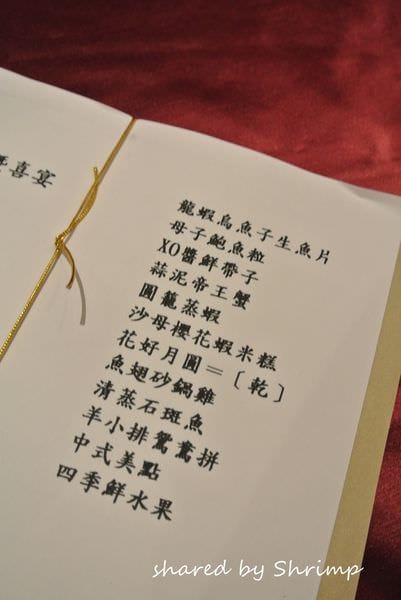 喜宴
龍蝦烏魚子生魚片
母子鮑魚粒
XO醬鮮帶子
蒜泥帝王蟹
圓籠蒸蝦
沙母櫻花蝦米糕
花好月圓=〔乾〕
魚翅砂鍋雞
清蒸石斑魚
羊小排鴛鴦拼
中式美點
四季鮮水果
shared by Shrimp